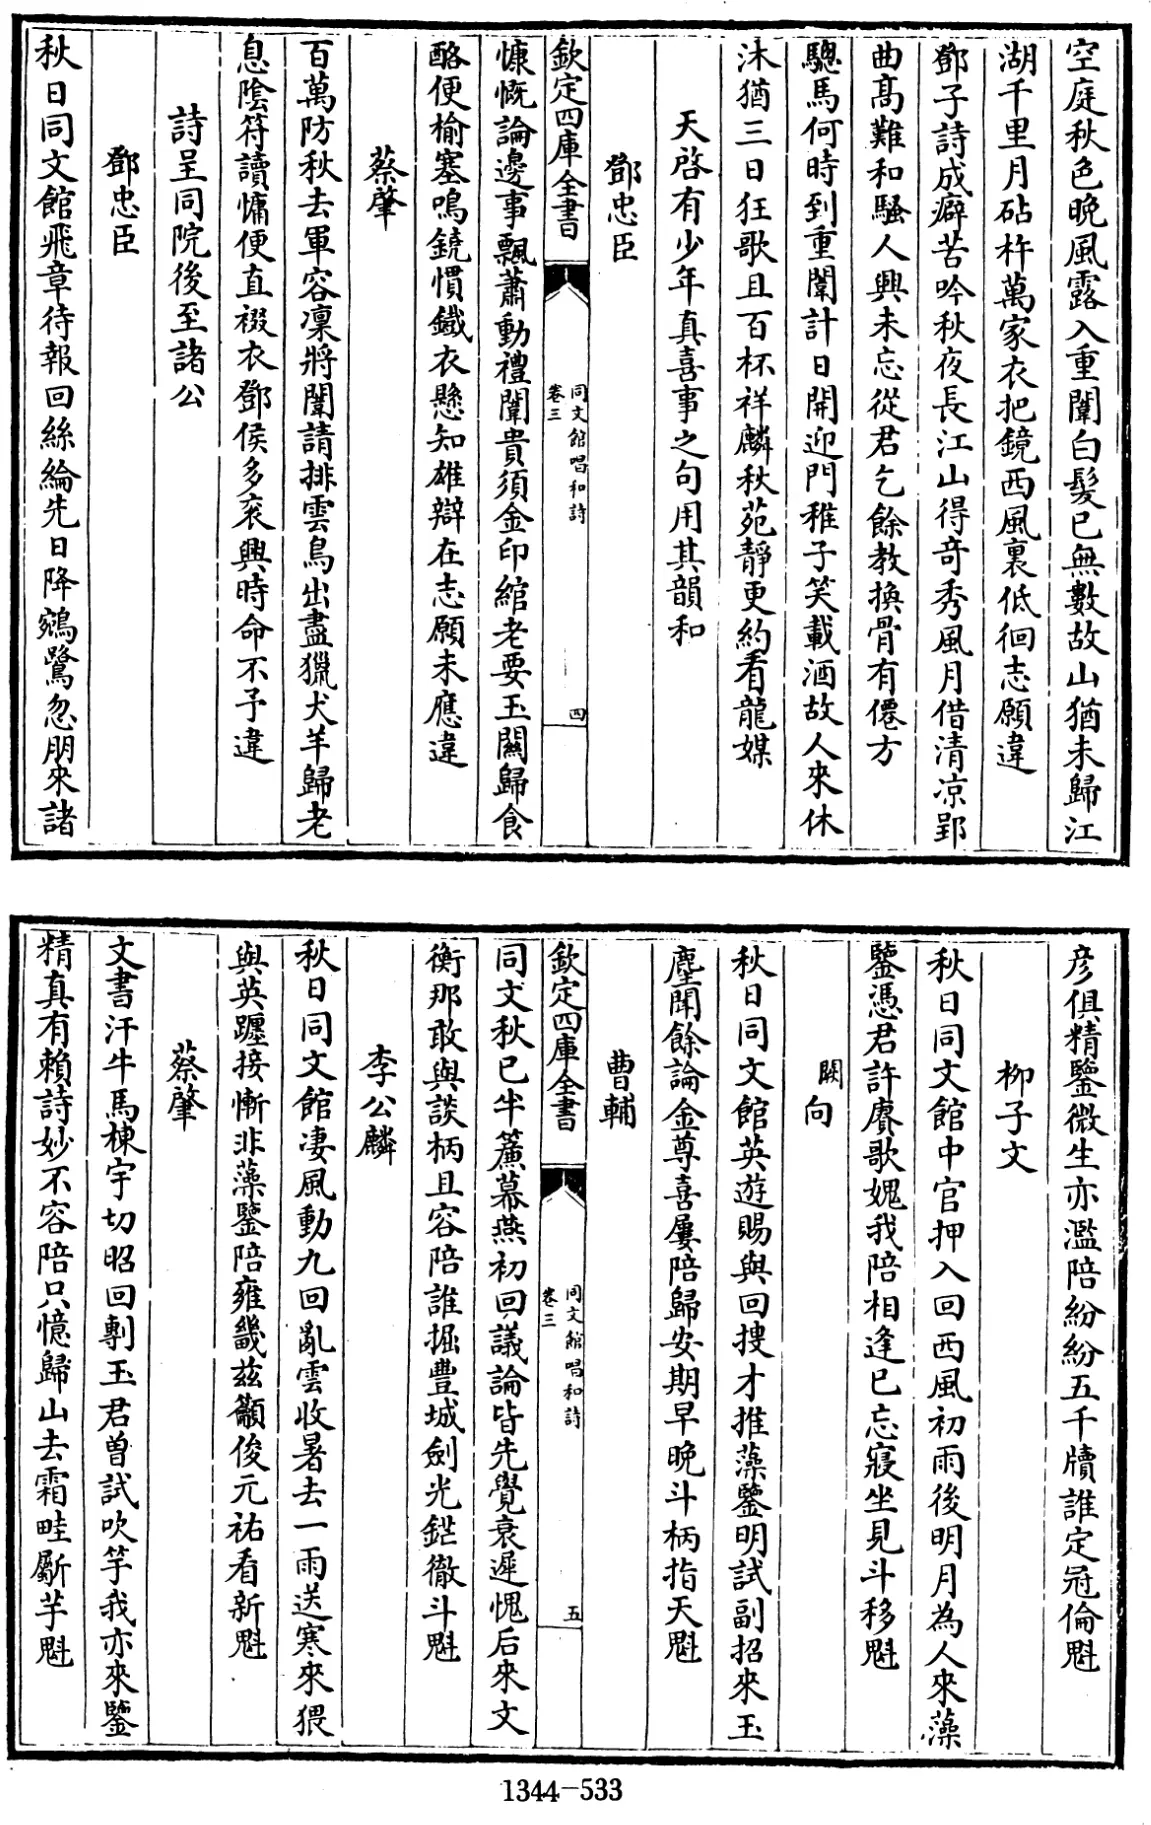 空庭秋色晚風露入重闈白髮已無數故山猶未歸江
湖千里月砧杵萬家衣把鏡西風裏低徊志願違
鄧子詩成癖苦吟秋夜長江山得竒秀風月借清凉郢
曲髙難和騷人興未忘從君乞餘教換骨有僊方
驄馬何時到重闈計日開迎門稚子笑載酒故人來休
沐猶三日狂歌且百杯祥麟秋苑靜更約看龍媒
天啓有少年真喜事之句用其韻和
鄧忠臣
欽定四庫全書
同文館唱和詩
卷三
四
慷慨論邊事飄蕭動禮闈貴須金印綰老要玉關歸食
酪便榆塞鳴鐃慣鐵衣懸知雄辯在志願未應違
蔡肇
百萬防秋去軍容凜將闈請排雲鳥出盡獵犬羊歸老
息陰符讀慵便直裰衣鄧侯多衮興時命不予違
詩呈同院後至諸公
鄧忠臣
秋日同文館飛章待報回絲綸先日降鵷鷺忽朋來諸
彦俱精鑒微生亦濫陪紛紛五千牘誰定冠倫魁
柳子文
秋日同文館中官押入回西風初雨後明月為人來藻
鑒憑君許賡歌媿我陪相逢已忘寢坐見斗移魁
闕向
秋日同文館英遊賜與回搜才推藻鑒明試副招來玉
麈聞餘論金尊喜屢陪歸安期早晚斗柄指天魁
曹輔
欽定四庫全書
同文館唱和詩
卷三
五
同文秋已半簾幕燕初回議論皆先覺衰遲愧后來文
衡那敢與談柄且容陪誰掘豐城劍光鋩徹斗魁
李公麟
秋日同文館淒風動九回亂雲收暑去一雨送寒來猥
與英躔接慚非藻鑒陪雍畿兹籲俊元祐看新魁
蔡肇
文書汗牛馬棟宇切昭回剸玉君曽試吹竽我亦來鑒
精真有賴詩妙不容陪只憶歸山去霜畦斸芋魁
1344-533